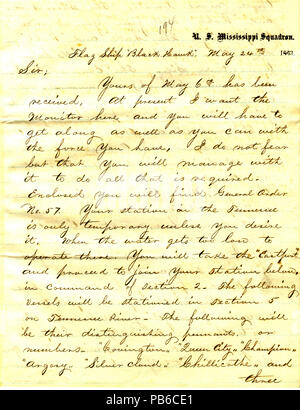 194
U. S. Mississippi Squadron.
Flag Ship "Black Hawk". May 24th 186
Sir;
Yours of May 6th has been
received, At present I want the
Monitor here, and you will have to
get along as well as you can with
the force you have, I do not fear
but that you will manage with
it to do all that is required.
Enclosed you will find General Order
No. 57. Your station on the Tennessee
is only temporary unless you desire
it. When the water gets too low to
operate there You will take the "Eastport"
and proceed to join Your Station below
in command of Section 2 - The following
vessels will be stationed in Section 5
on Tennessee River - The following will
be their distinguishing pennants, or
numbers. "Covington", "Queen City", "Champion",
"Argosy", "Silver Cloud", "Chillicothe", and
three
alamy
Image ID: PB6CE1
www.alamy.com